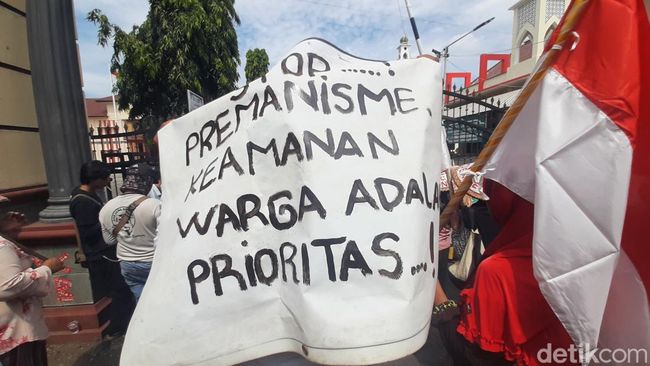 PREMANISME,
KEAMANAN
WARGA ADALA
PRIORITAS...!
detikcom